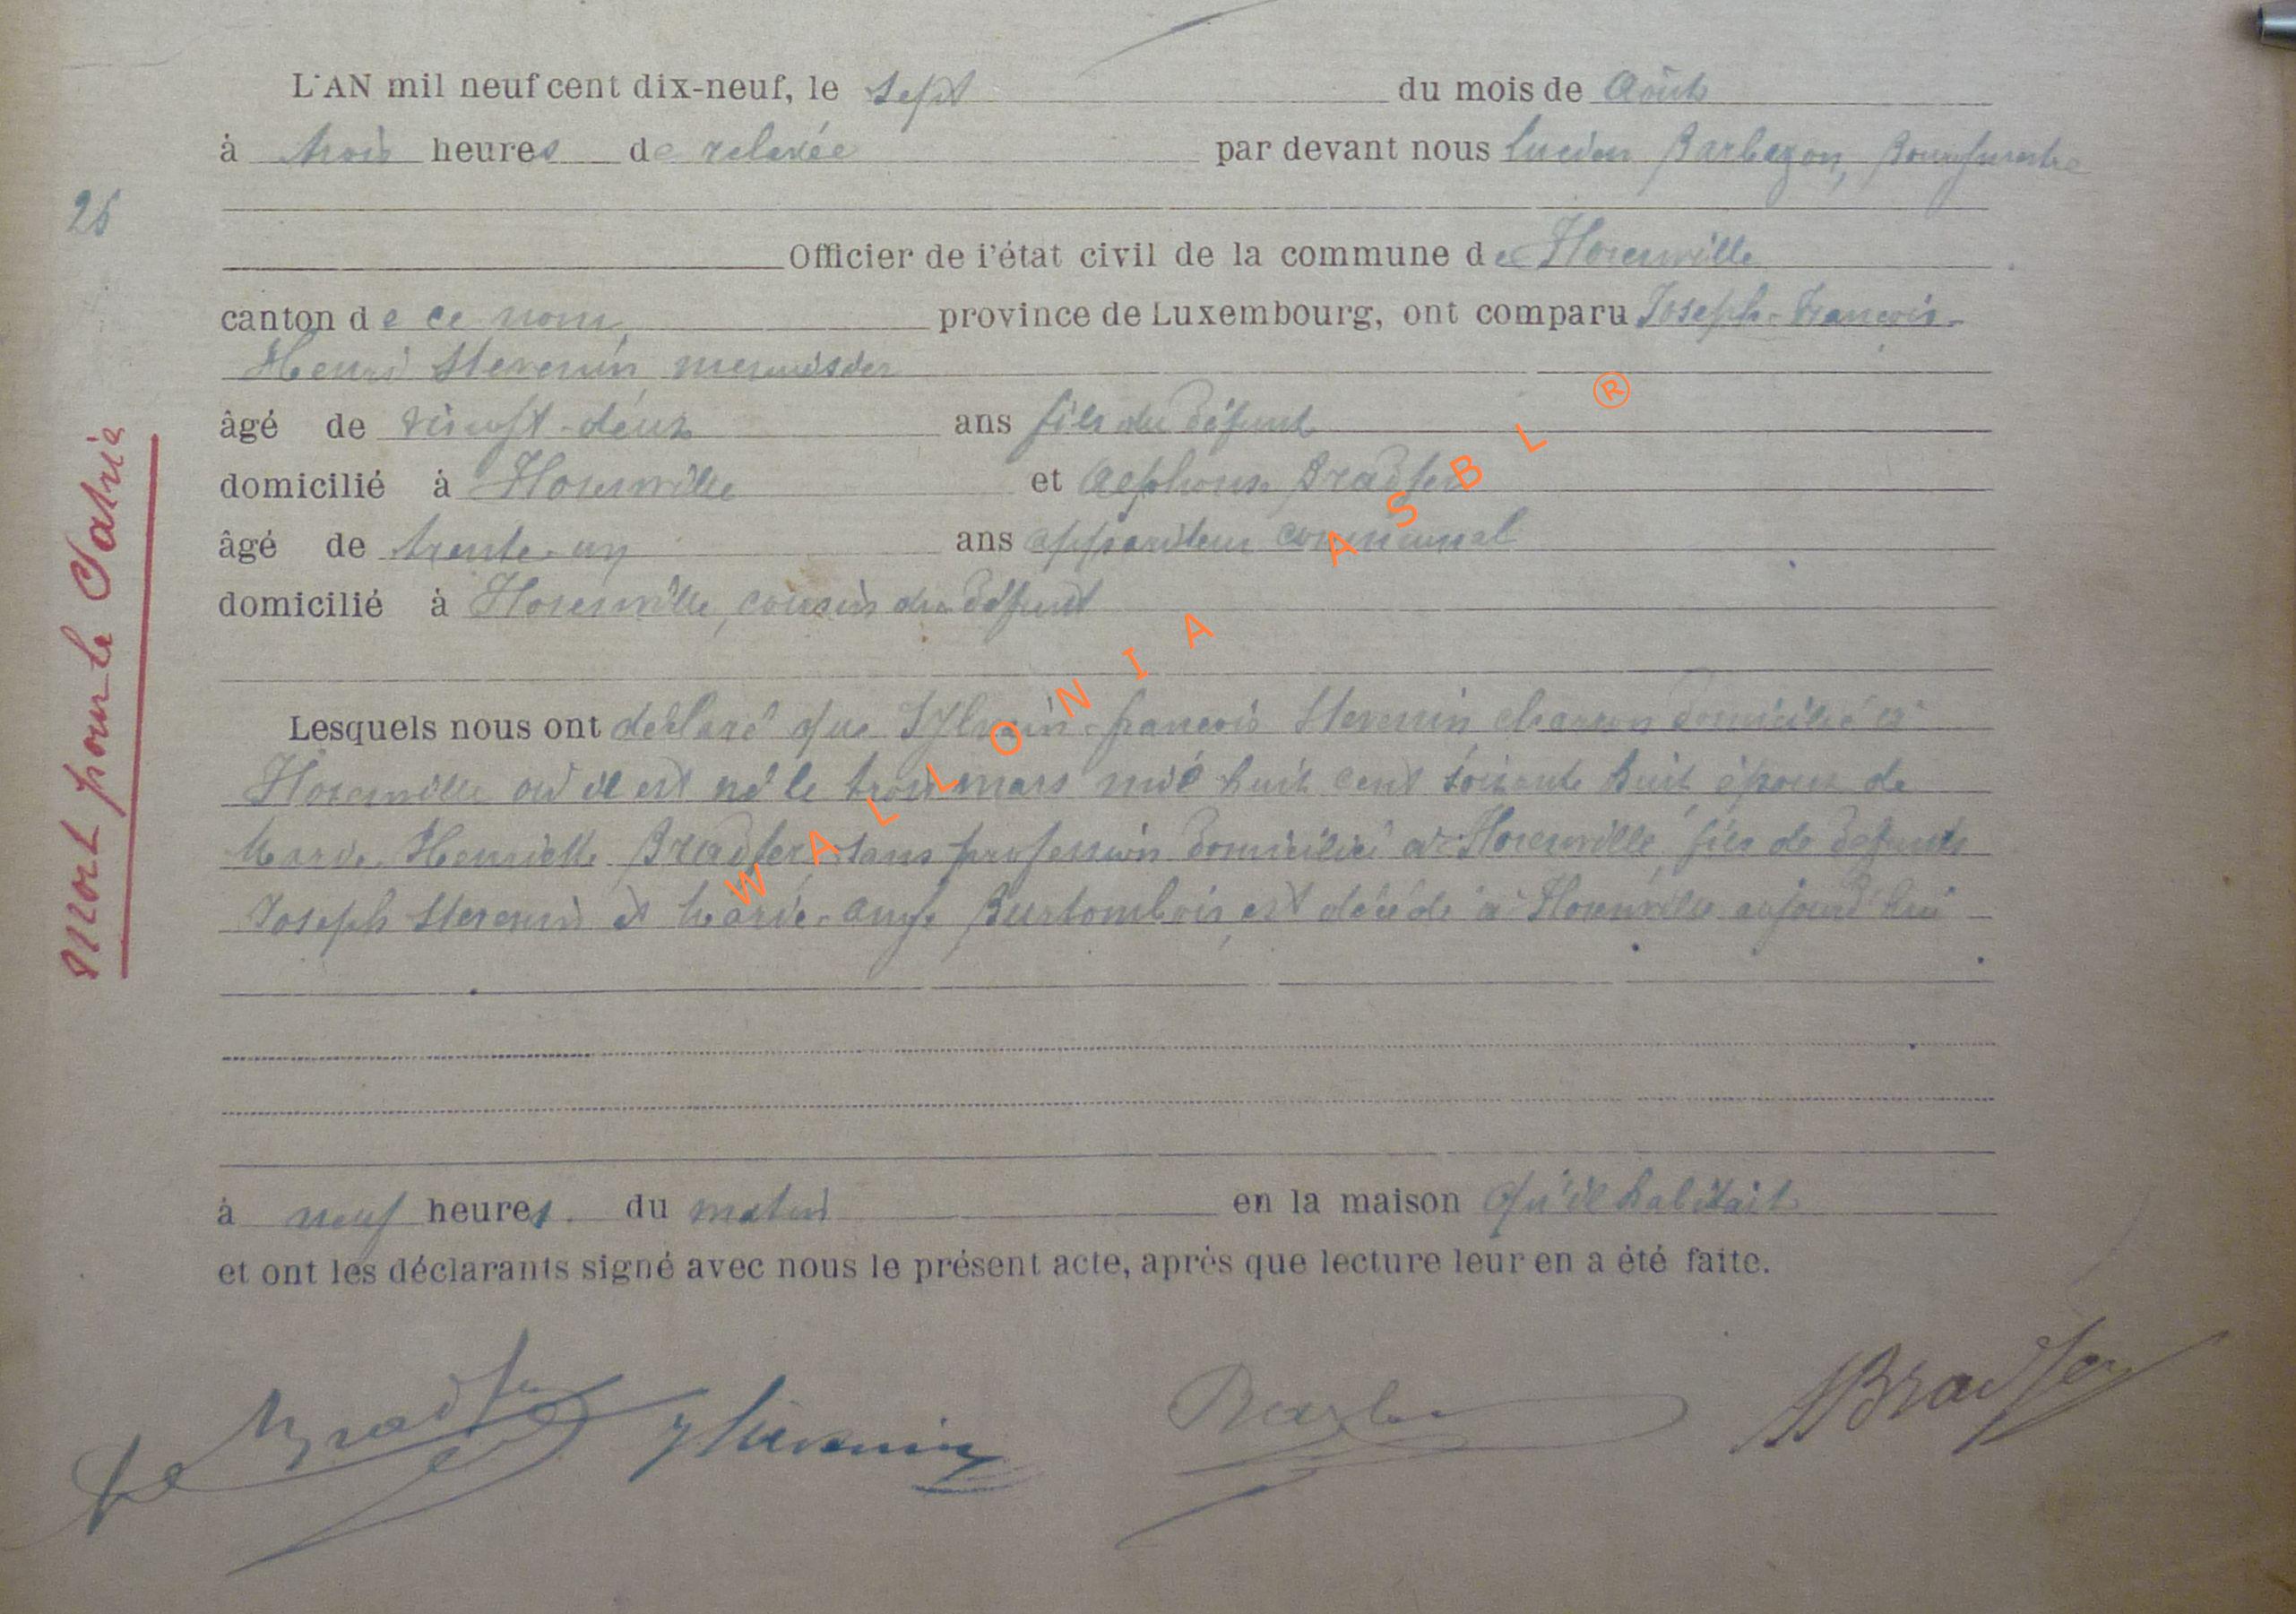 L'AN mil neuf cent dix-neuf, le sept du mois de Août
à trois heures de relevée par devant nous Lucien Barbazon, Bourgmestre
25
Officier de l'état civil de la commune de Florenville
canton de ce nom province de Luxembourg, ont comparu Joseph-François-
Henri Stevenin menuisier
âgé de vingt-deux ans fils du défunt
domicilié à Florenville et Alphonse Bradfer
âgé de trente-un ans appariteur communal
domicilié à Florenville, cousin du défunt
Lesquels nous ont déclaré que Sylvain-françois Stevenin, charron domicilié à
Florenville où il est né le trois mars mil huit cent soixante huit, époux de
Marie-Henriette Bradfer, sans profession domiciliée à Florenville, fils de défunts
Joseph Stevenin et Marie-Ange Burtombois, est décédé à Florenville aujourd'hui
à neuf heures du matin en la maison qu'il habitait
et ont les déclarants signé avec nous le présent acte, après que lecture leur en a été faite.
Bradfer J Stevenin ABradfer
Mort pour la Patrie
WALLONIA ASBL ®